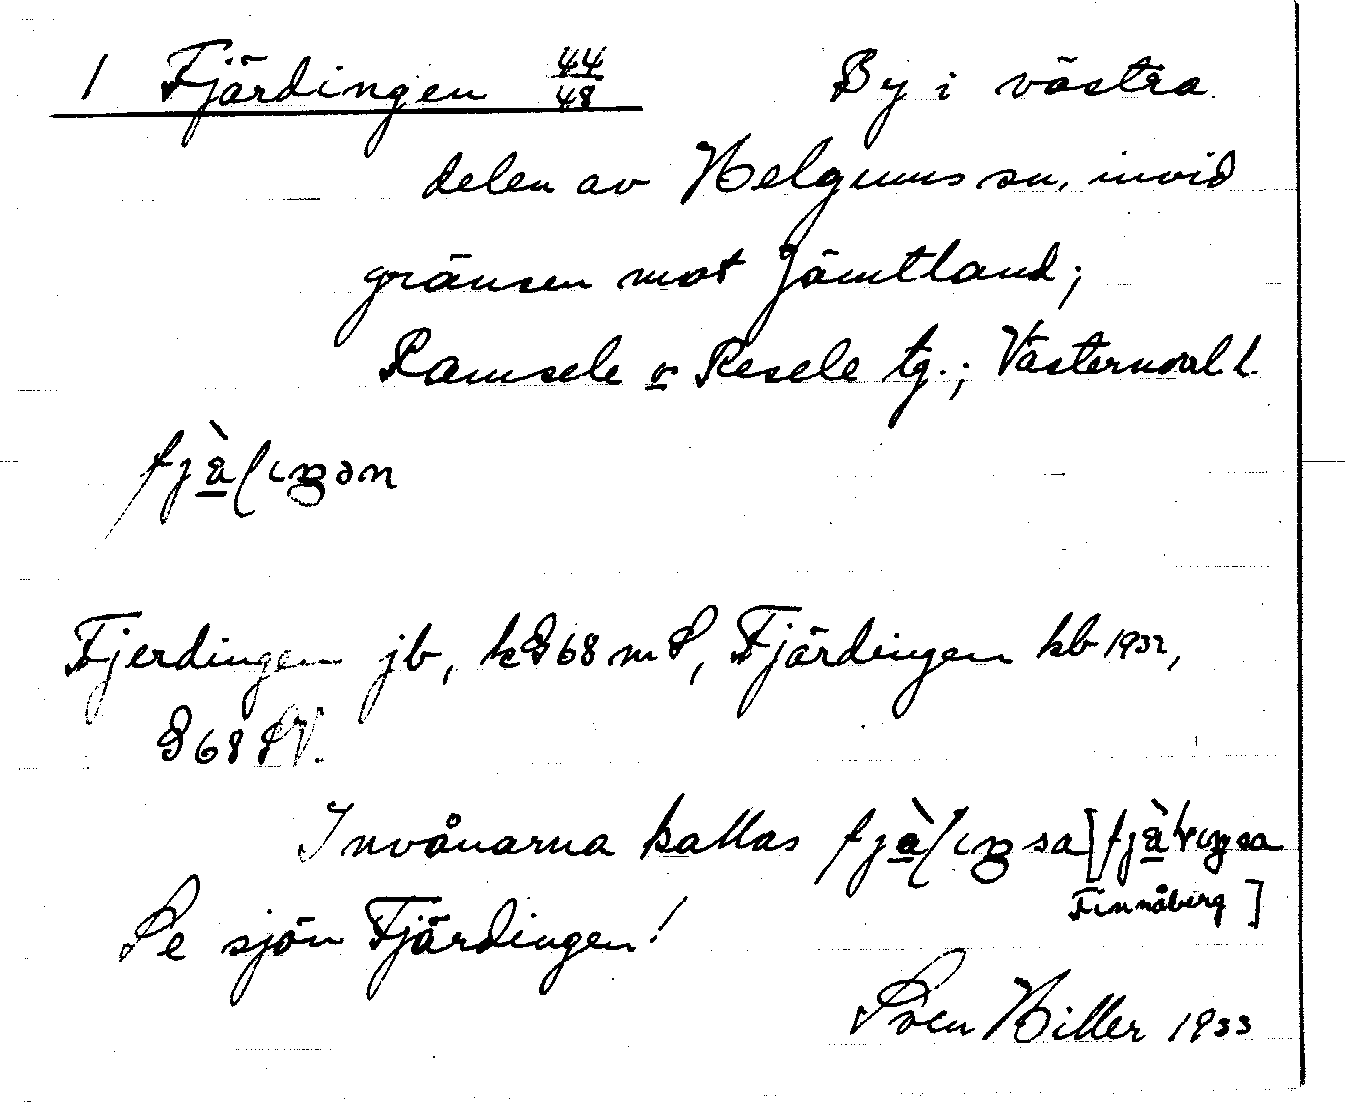 1 Fjärdingen 44/48 By i västra
delen av Helgums sn, invid
gränsen mot Jämtland;
Ramsele o Resele tg.; Västernorrl l.
Fjerdingen jb, kG68mS, Fjärdingen kb 1932,
G68SV.
Invånarna kallas
Finnåberg]
Se sjön Fjärdingen!
Sven Hiller 1933